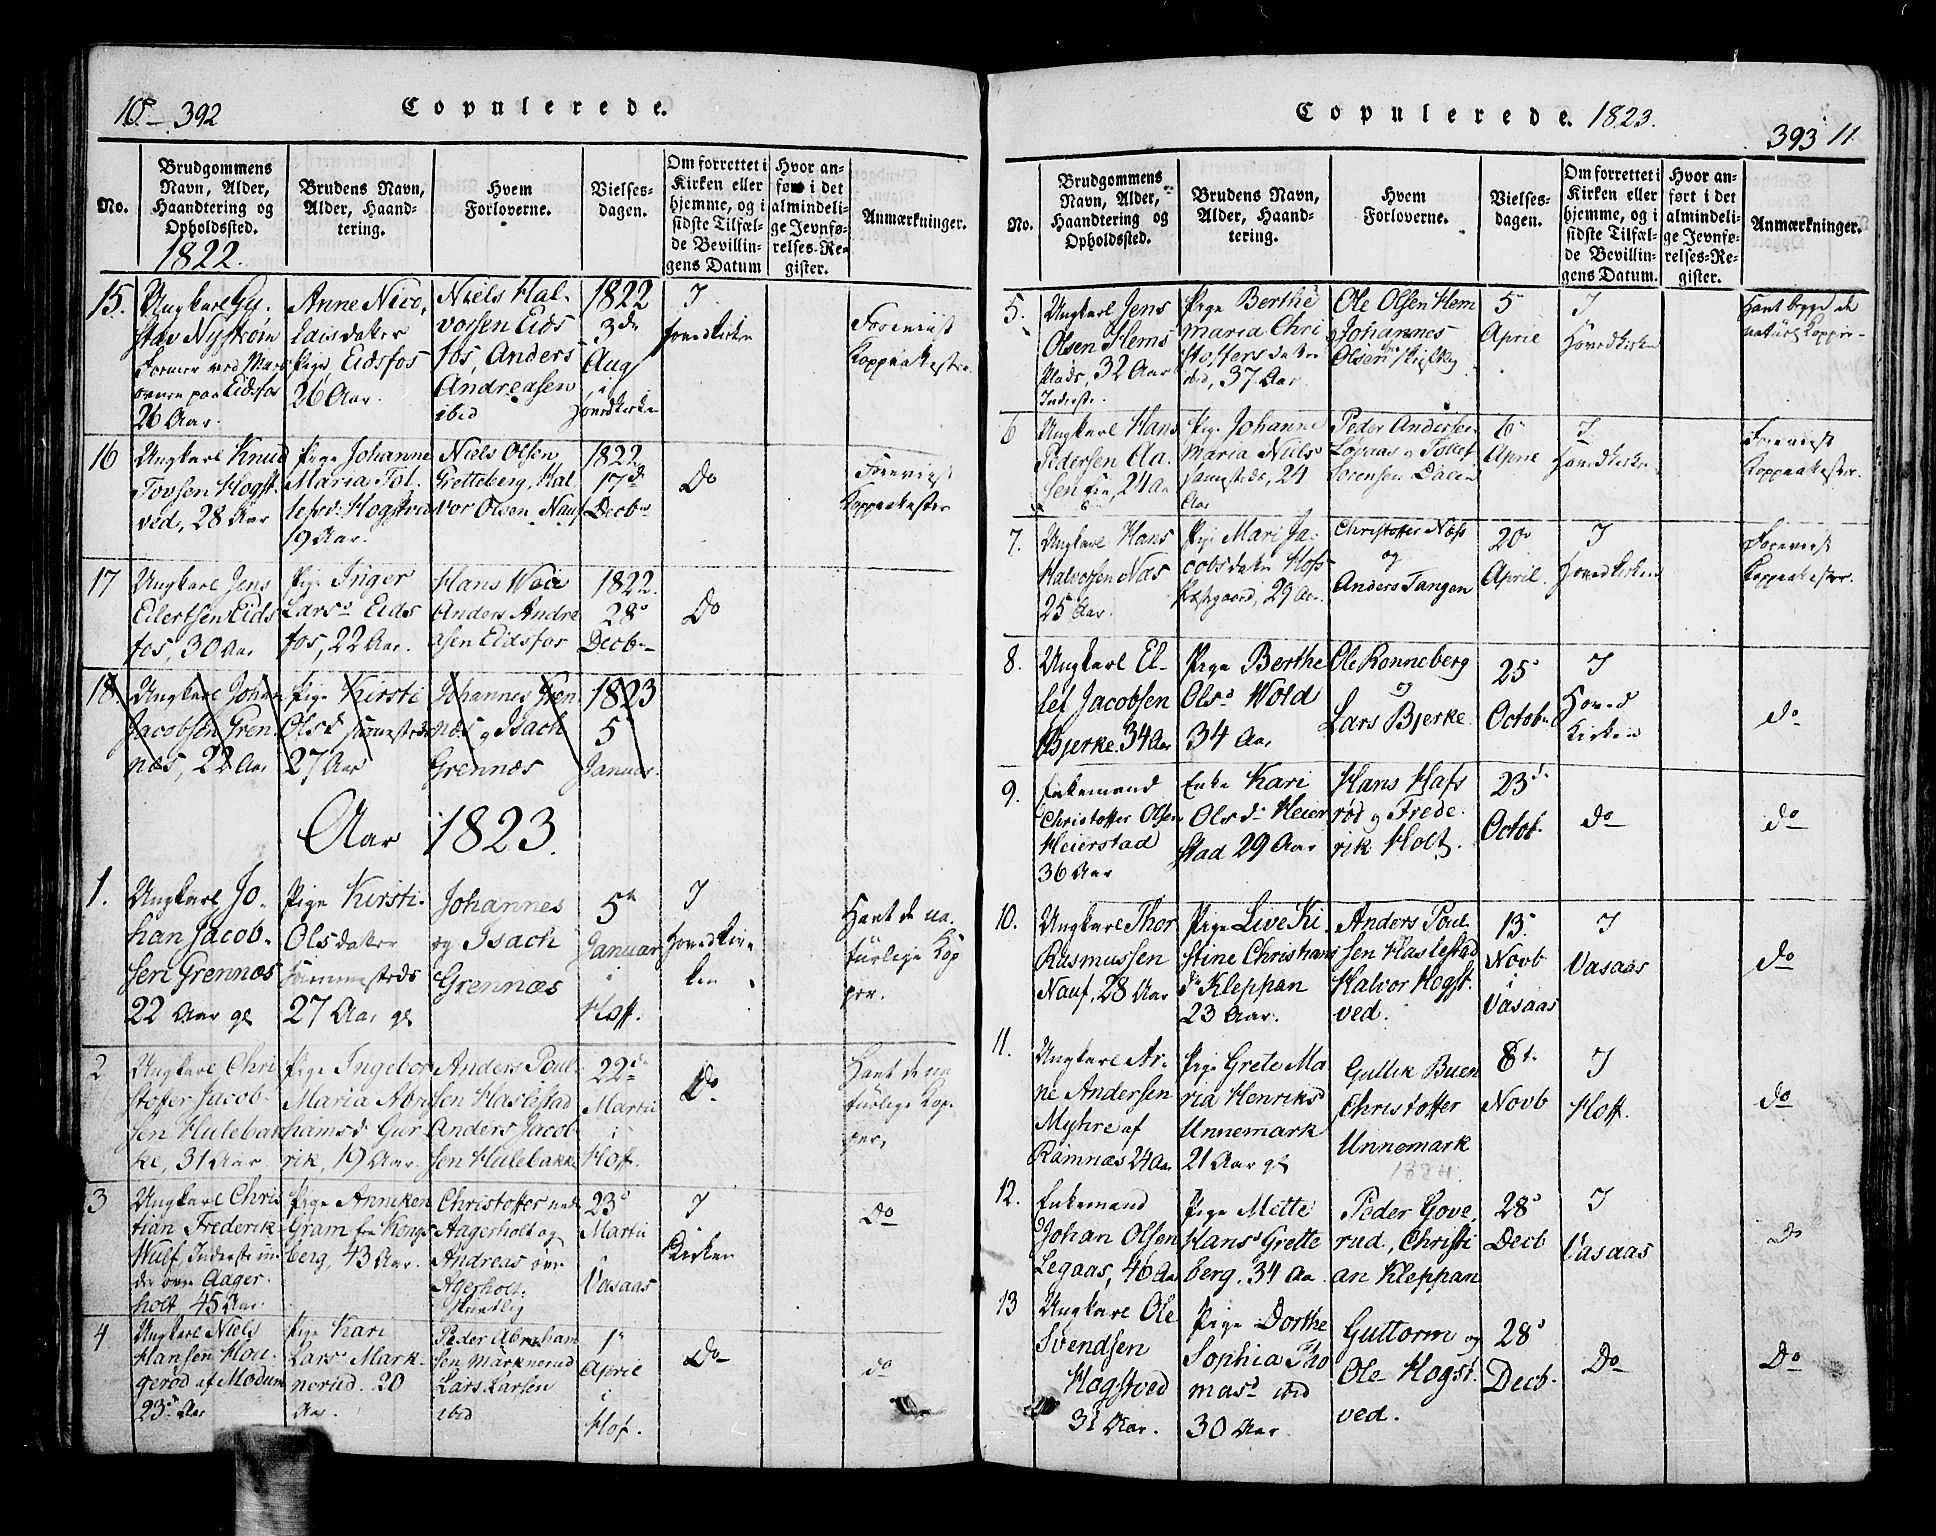 10. 392
Copulerede.
No.
Brudgommens
Navn, Alder,
Haandtering og
Opholdssted.
1822.
Brudens Navn,
Alder, Haand-
tering.
Hvem
Forloverne.
Vielses-
dagen.
Om forrettet i
Kirken eller
hjemme, og i
sidste Tilfæl-
de Bevillin-
gens Datum
Hvor an-
ført i det
almindeli-
ge Jevnfø-
relses-Re-
gister.
Anmærkninger.
15.
Ungkarl Gu-
stav Nystrøm
Former ved Mas
ovnen paa Eidsfos
26 Aar.
Anne Nico,
laisdatter
Pige, Eidsfos
26 Aar.
Niels Hal-
vorsen Eids
fos, Anders
Andreasen
ibid
1822
3de
Aug
i
Hovedkirke
I
Hovedkirken
Foreviist
Koppeattester
16
Ungkarl Knud
Tovsen Hogst
ved, 28 Aar
Pige Johanne
Maria Tol
lefsd: Hogstve
19 Aar.
Niels Olsen
Grotteberg, Hal
vor Olsen Nauf
1822
17de
Decbr
Do
Foreviist
Koppeattester
17
Ungkarl Jens
Eilertsen Eids
fos, 30 Aar
Pige Inger
Larsd Eids
fos, 22 Aar.
Hans Weie
Anders Andre
asen Eidsfos
1822.
28d
Decb
Do
18.
Ungkarl Johan
Jacobsen Gren
næs, 22 Aar
Pige Kirsti
Olsd sammesteds
27 Aar
Johannes Gren
næs og Isach
Grennæs
1823
5
Januar.
Aar 1823.
1.
Ungkarl Jo-
han Jacob-
sen Grennæs
22 Aar gl
Pige Kirsti
Olsdatter
sammesteds
27 Aar gl
Johannes
og Isach
Grennæs
5te
Januar
i
Hoff.
I
Hovedkir
ken
Havt de na-
turlige Kop
per.
2
Ungkarl Chri
stoffer Jacob-
sen Hulebak
ke, 31 Aar.
Pige Ingebor
Maria Abra
hamsd Gur
rik, 19 Aar.
Anders Poul
sen Haslestad
Anders Jacob-
sen Hulebakke
22de
Martii
i
Hoff.
Do
Havt de na
turlige Kop-
per,
3
Ungkarl Chris
tian Frederik
Wulf, Inderste un
der øvre Aager-
holt, 45 Aar.
Pige Anneken
Gram fra Kongs
berg, 43 Aar.
Christoffer ned
Aagerholt og
Andreas øvre
Agerholt.
23d
Martii
Vasaas
I
Kirken
Do
4
Ungkarl Niels
Hansen Hou
gerød af Modum
23 Aar
Pige Kari
Larsd Mark-
nerud. 20
Aar.
Peder Abraham
sen Marknerud
Lars Larsen
ibid
1
April
i
Hof.
Do
do
Copulerede. 1823.
393 11
No.
Brudgommens
Navn, Alder,
Haandtering og
Opholdssted.
Brudens Navn,
Alder, Haand-
tering.
Hvem
Forloverne.
Vielses-
dagen.
Om forrettet i
Kirken eller
hjemme, og i
sidste Tilfæl-
de Bevillin-
gens Datum.
Hvor an-
ført i det
almindeli-
ge Jevnfø-
relses-Re-
gister.
Anmærkninger.
5.
Ungkarl Jens
Olsen Hems
Plads, 32 Aar
Inderste.
Pige Berthe
maria Chri
stoffersdatter
ibid, 37 Aar.
Ole Olsen Hem
Johannes
Olsen
5
April
I
Hovedkirken
Havt begge de
naturl Kopper
6
Ungkarl Hans
Pedersen Aa-
sen 24 Aar
Pige Johanne
Maria Niels
sammesteds, 24
Aar
Peder Andersen
Løvaas og Tollef
Sørensen Dalen
6
April
I
Hovedkirken
Foreviist
Koppeattester.
7.
Ungkarl Hans
Halvorsen Næs
25 Aar.
Pige Mari Ja-
cobsdatter Hofs
Præstgaard, 29 Aar.
Christoffer Næss
og
Anders Tangen
20
April.
I
Hovedkirken
Foreviist
Koppeattester.
8.
Ungkarl El-
lef Jacobsen
Bjerke. 34 Aar
Pige Berthe
Olsd Wold
34 Aar
Ole Ronneberg
og
Lars Bjerke.
25d
Octobr
I
Hoved
Kirken
do
9.
Enkemand
Christoffer Olsen
Heierstad
36 Aar
Enke Kari
Olsd Heier
stad 29 Aar
Hans Hafs
rød og Frede-
rik Holt.
23d
Octob.
do
do
10.
Ungkarl Thor
Rasmussen
Nauf, 28 Aar
Pige Live Ki
stine Christians
d Kleppan
23 Aar.
Anders Poul
sen Haslestad
Halvor Hogst.
ved.
13
Novb
i
Vasaas
I
Vasaas
do
11.
Ungkarl Ar-
ne Andersen
Myhre af
Ramnæs 24 Aar
Pige Grete Ma
ria Henriksd
Unnemark
21 Aar gl
Gullik Buen
Christoffer
Unnemark
1824.
8de
Novb
I
Hoff.
do
12.
Enkemand
Johan Olsen
Legaas, 46 Aar
Pige Mette
Hansd Grette
berg. 34 Aar
Peder Gove,
rud, Christi
an Kleppan
28d
Decb
I
Vasaas
Do
13
Ungkarl Ole
Svendsen
Hogstved
31 Aar.
Pige Dorthe
Sophia Tho
masd ibid
30 Aar
Guttorm og
Ole Hogst.
ved.
28d
Decb.
Do
Do